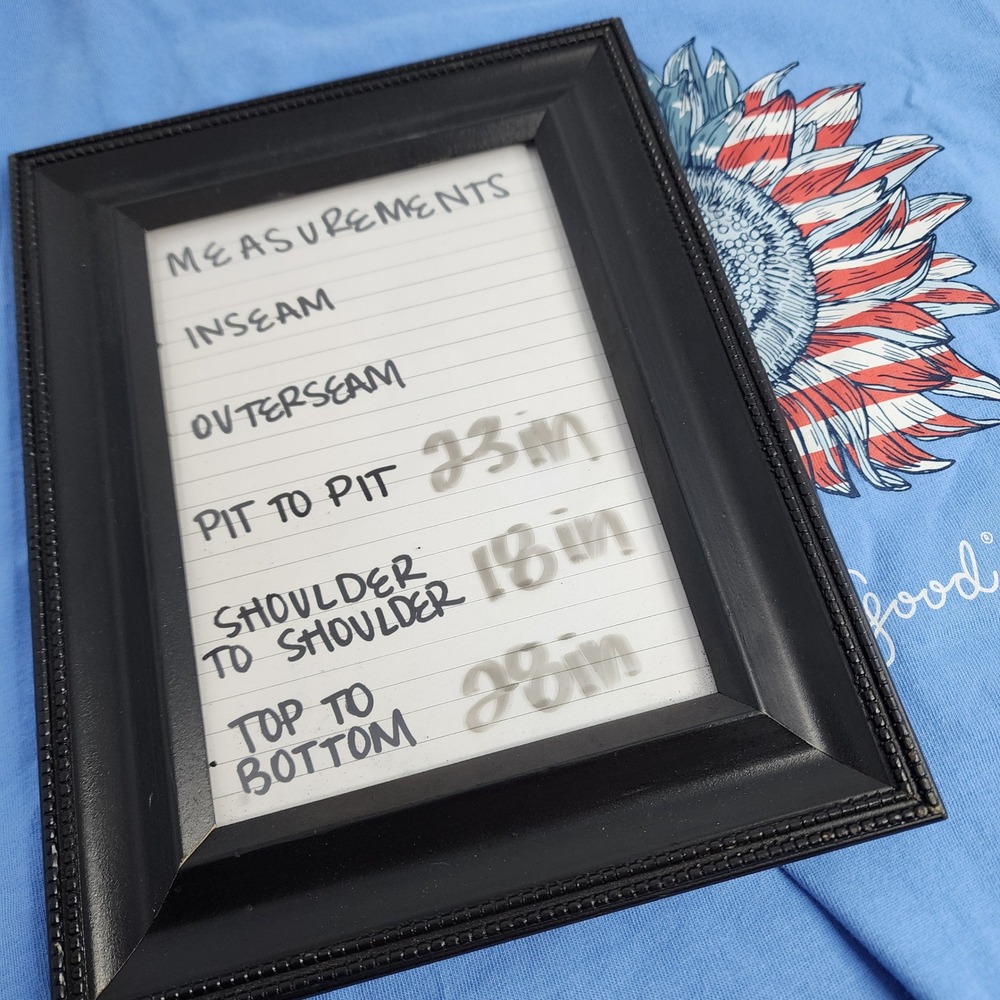 MEASUREMENTS
INSEAM
OUTERSEAM
PIT TO PIT 23 in
SHOULDER
TO SHOULDER 18 in
TOP TO
BOTTOM 28 in
good®